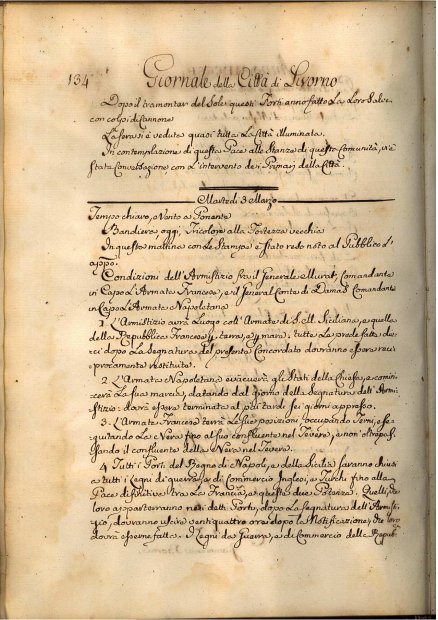 134 Giornale della Città di Livorno
Dopo il tramontar del Sole questi Forti anno fatto La Loro Salve
con colpi di Cannone
La sera si è veduta quasi tutta La Città illuminata.
In contemplazione di questa Pace alle Stanze di questa Comunità, vi è
stata Conversazione con L'intervento dei Primarj della Città.
Martedì 3 Marzo
Tempo chiaro, e Vento a Ponente
Bandiera oggi, Tricolore alla Fortezza vecchia
In questa mattina con Le Stampe è stato reso noto al Pubblico L'
appo:
Condizioni dell'Armistizio fra il Generale Murat, Comandante
in Capo L'Armata Francese, e il General Conte di Damas Comandante
in Capo L'Armata Napoletana
1. L'Armistizio avrà Luogo coll'Armate di S.M. Siciliana, e quella
della Repubblica Francese per terra, e per mare: tutte Le prede fatte
dieci dopo La Segnatura del presente Concordato dovranno essere reci-
procamente restituite.
2. L'Armata Napoletana evacuerà gli Stati della Chiesa, e comin-
cerà La sua marcia, datando dal giorno della Segnatura dell'Armi-
stizio: dovrà esser terminata al più tardi sei giorni appresso.
3. L'Armata Francese terrà Le sue posizioni occupando Terni, e se-
guitando La Nera fino al suo confluente nel Tevere, e non oltrepas-
sando il confluente della Nera nel Tevere.
4. Tutti i Porti del Regno di Napoli, e della Sicilia saranno chiusi
a tutti i Legni da guerra, e di Commercio Inglesi, e Turchi fino alla
Pace definitiva tra La Francia, e queste due Potenze. Quelli, che
loro apparterranno nei detti Porti, dopo La Segnatura dell'Armisti-
zio, dovranno uscire ventiquattro ore dopo la Notificazione, che loro
dovrà esserne fatta. I Legni da Guerra, e di Commercio delle Repub-